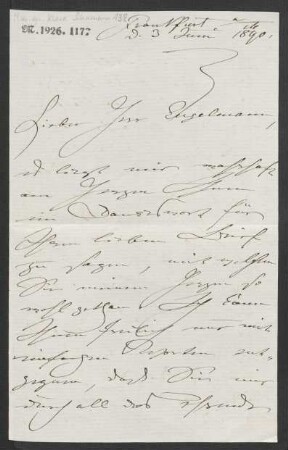 M. 1926. 1177
Frankfurt a/M
d. 3 Juni 1890.
Lieber Herr Engelmann,
es liegt mir wahrhaft
am Herzen Ihnen
ein Dankeswort für
Ihren lieben Brief
zu sagen, mit welchem
Sie meinem Herzen so
wohl gethan. Ich kann
Ihnen freilich nur mit
Worten
daß Sie mir
durch all das